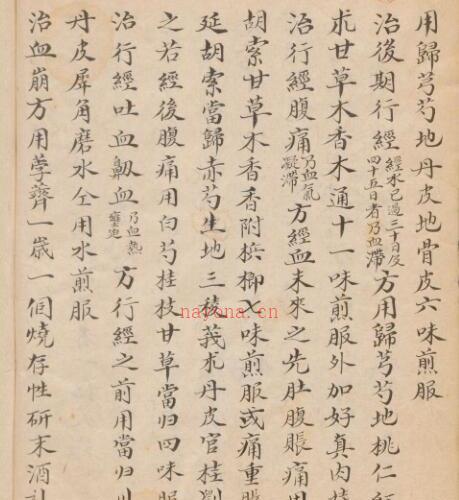 用歸芎芍地丹皮地骨皮六味煎服
治後期行經經水已過三十日及四十五日者乃血滯方用歸芎芍地桃仁
朮甘草木香木通十一味煎服外加好真肉桂
治行經腹痛乃血氣凝滯方經血未來之先肚腹脹痛
胡索甘草木香香附梹榔七味煎服或痛重脹
延胡索當歸赤芍生地三稜莪朮丹皮官桂劉
之若經後腹痛用白芍桂枝甘草當归四味服
治行經吐血衂血乃血熱方行經之前用當归
丹皮犀角磨水仝用水煎服
治血崩方用荸薺一歲一個燒存性研末酒
nayona.cn